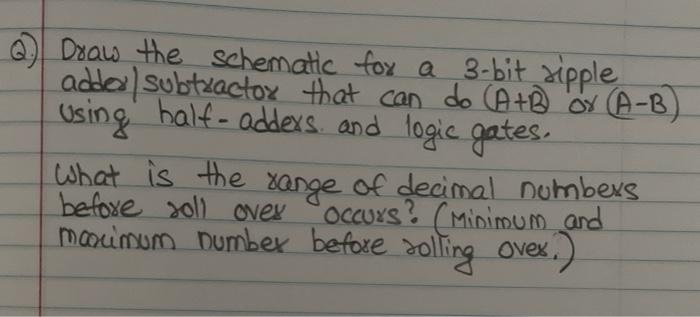 Q) Draw the schematic for a 3-bit ripple
adder/subtractor that can do (A+B) or (A-B)
using half-adders and logic gates.
What is the range of decimal numbers
before roll over occurs? (Minimum and
maximum number before rolling over.)